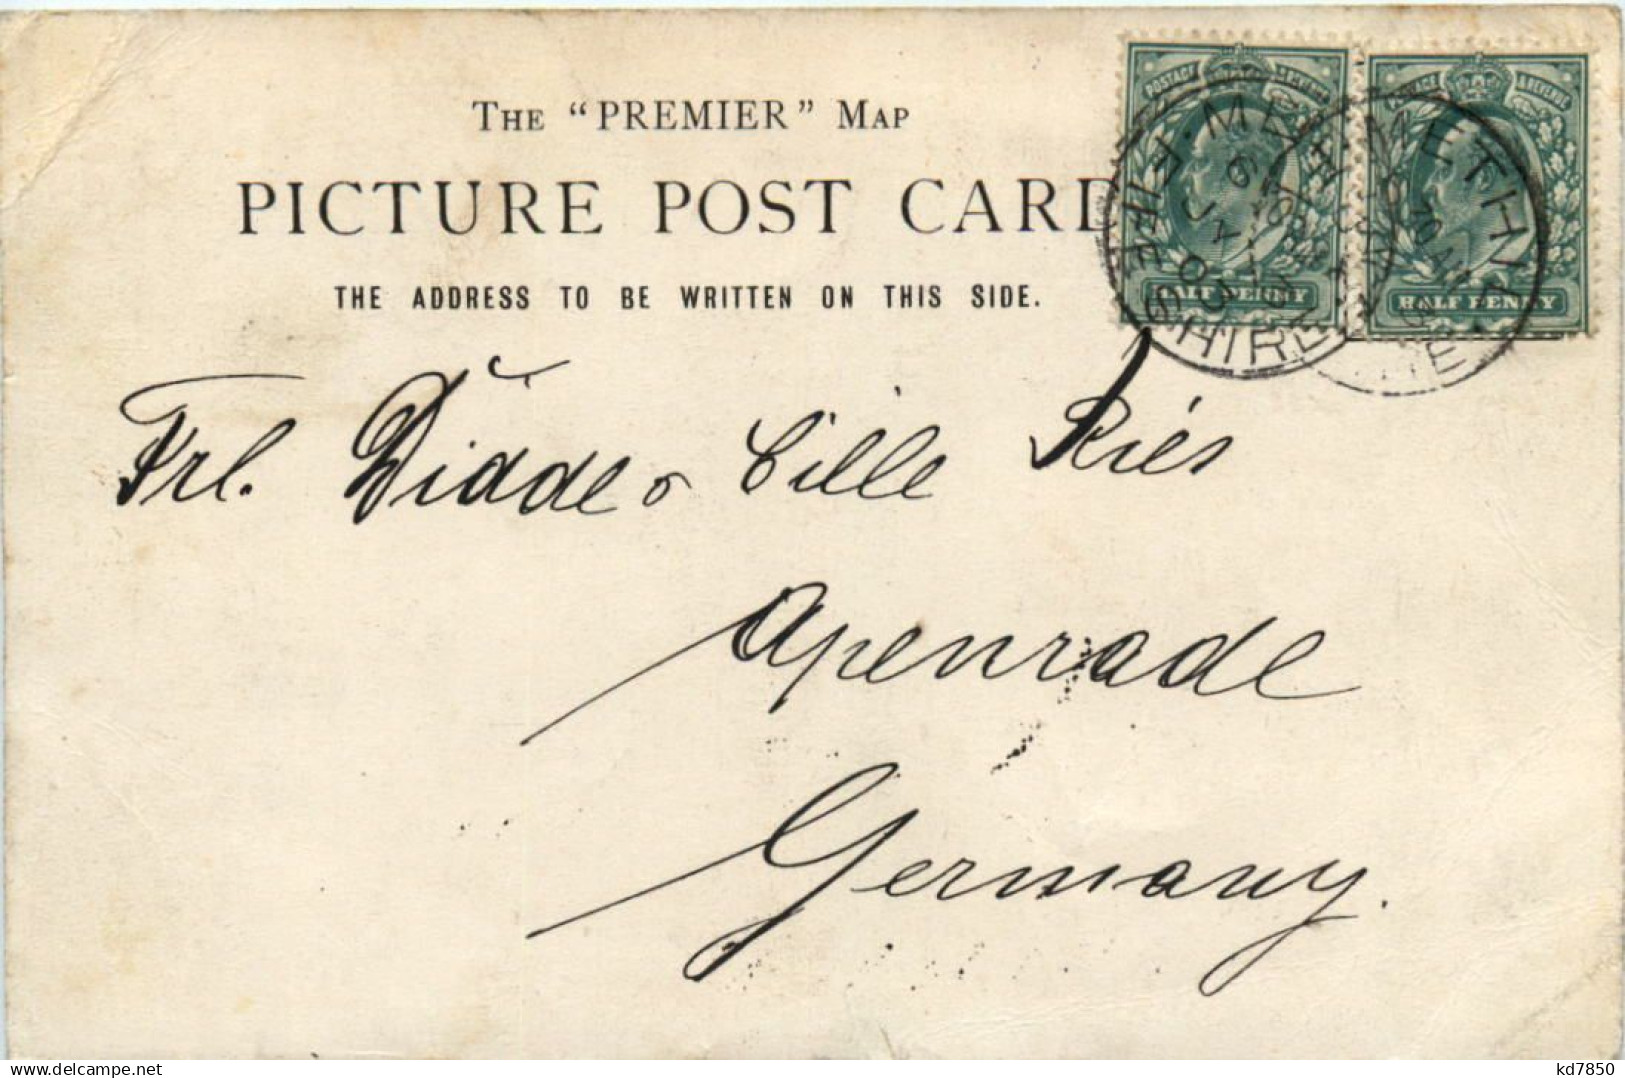 The "PREMIER" Map
PICTURE POST CARD
THE ADDRESS TO BE WRITTEN ON THIS SIDE.
POSTAGE & REVENUE
HALF PENNY
HALF PENNY
METHIL
FIFESHIRE
Frl. Diddeo Cille Riés
Apenrade
Germany.
kd7850